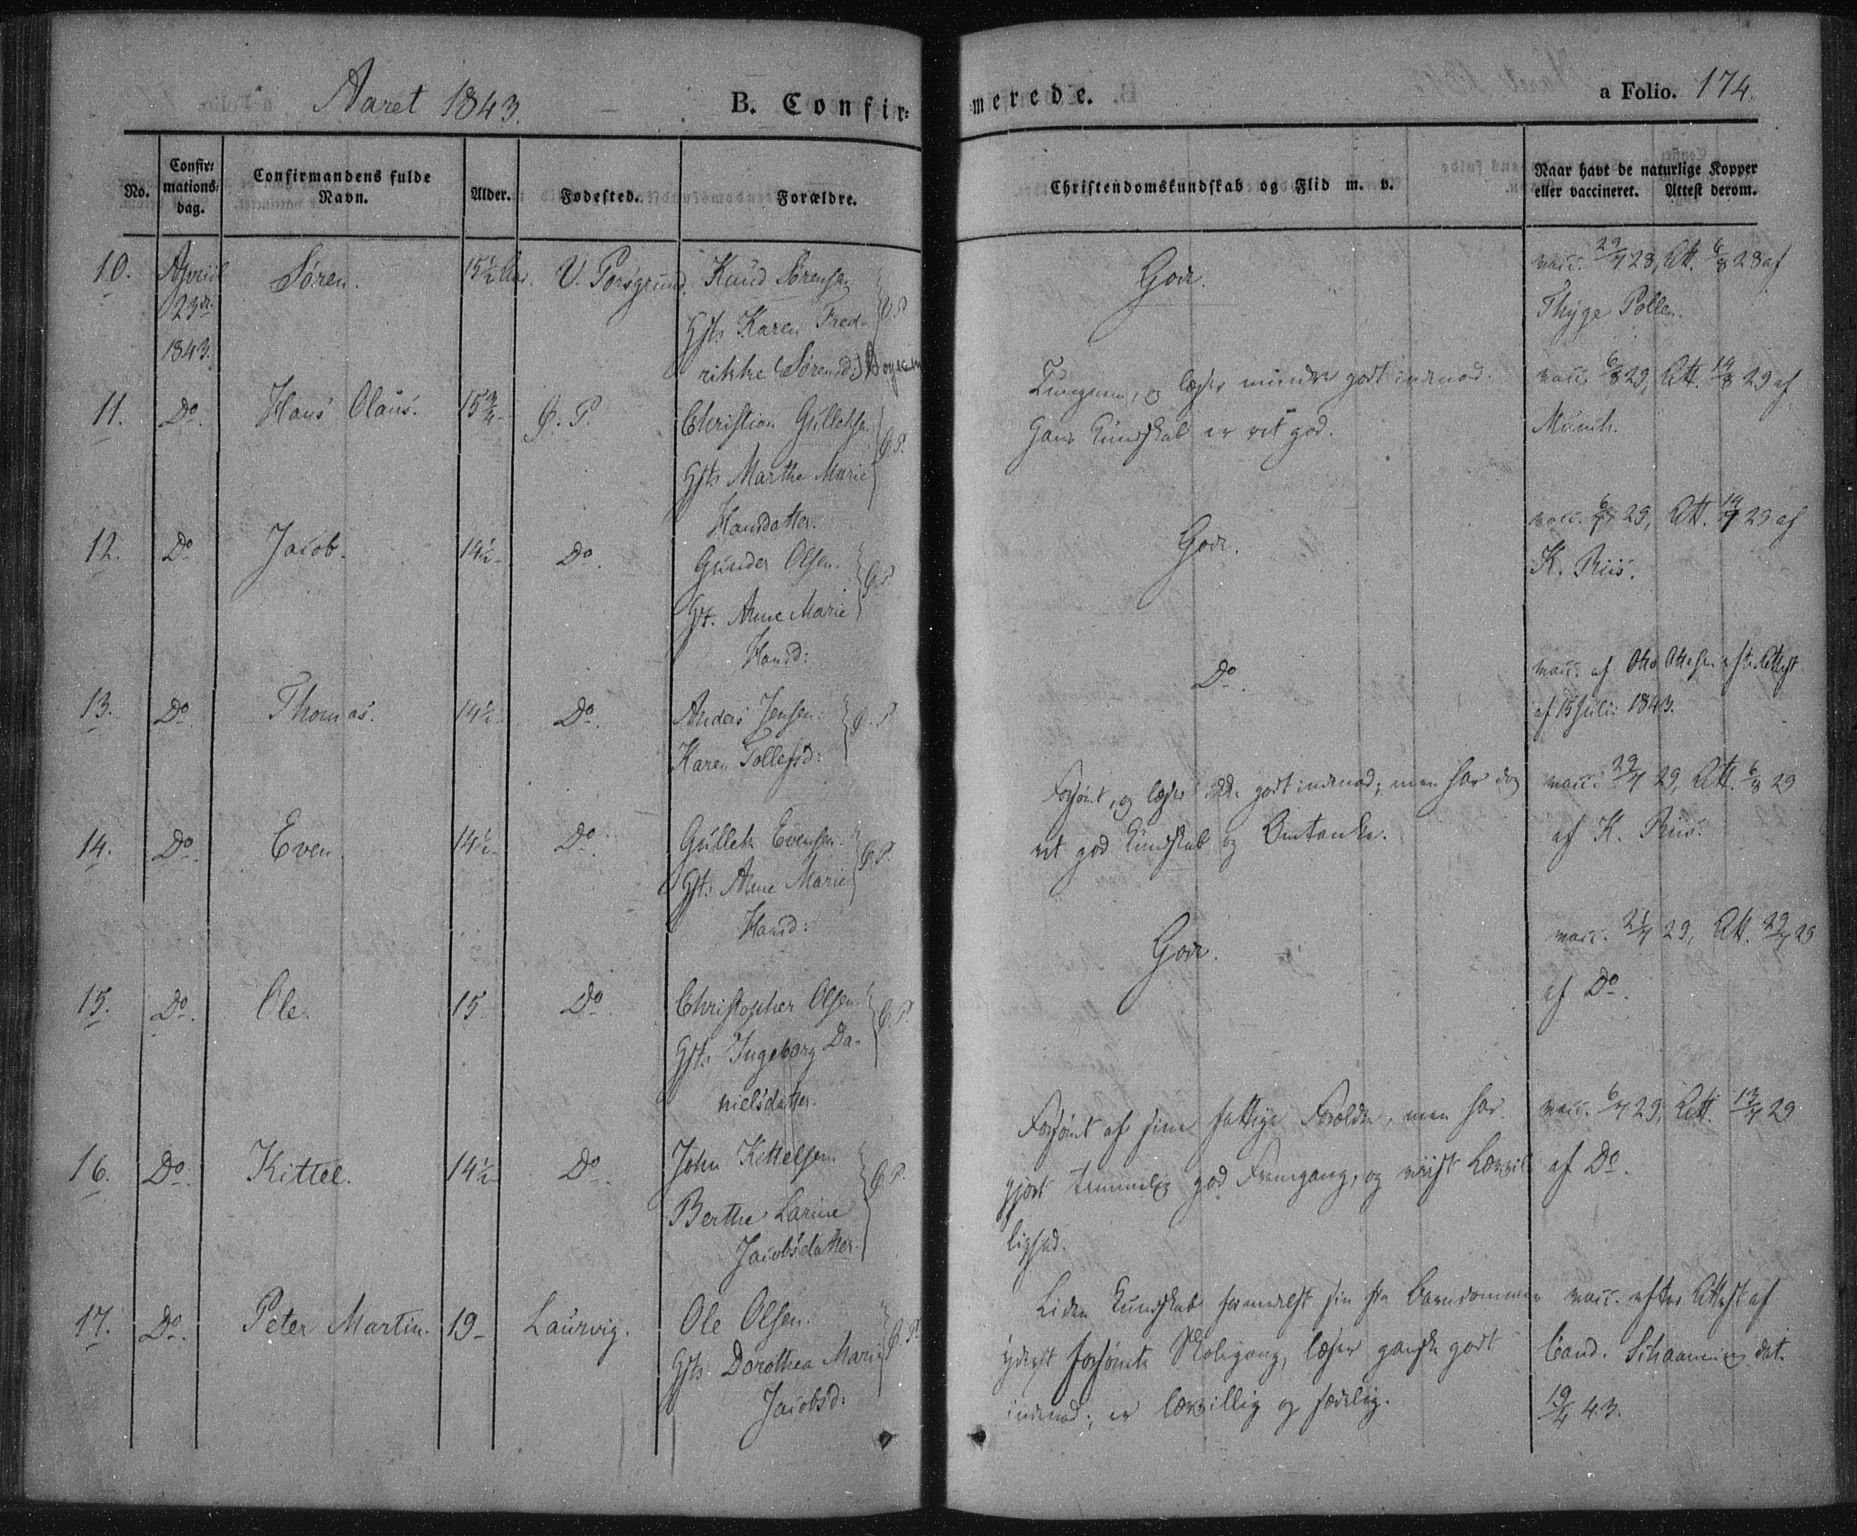 Aaret 1843.
B. Confir=
merede.
a Folio. 174.
No.
Confir=
mations=
dag.
Confirmandens fulde
Navn.
Alder.
Fødested.
Forældre.
Christendomskundskab og Flid m. v.
Naar havt de naturlige Kopper
eller vaccineret. Attest derom.
10. April Søren. 15½ Aar. V. Porsgrund. Knud Sørensen
23de
1843.
Gjts Karen Fred-
rikke Sørensd:
Gode.
vacc. 29/7 28, Att. 6/8 28 af
Thyge Pollen.
11. Do. Hans Olaus. 15¾ G. P. Christian Gulleksen G. P.
Gjts Marthe Marie
Hansdatter.
Tungnem, og læser mindre godt indenad;
hans Kundskab er ret god.
vacc. 6/8 29, Att. 19/8 29 af
Munch.
12. Do. Jacob. 14½ Do. Gunder Olsen. G. P.
Gjt. Anne Marie
Hansd:
Gode.
vacc. 6/7 29, Att. 14/7 29 af
K. Riis.
13. Do. Thomas. 14½ Do. Anders Jensen G. P.
Karen Tollefsd:
Do.
vacc. af Ottesen efter Attest
af 15 Juli 1843.
14. Do. Even. 14½ Do. Gullek Evensen. G. P.
Gjts Anne Marie
Hansd:
Forsømt, og læser ikke godt indenad; men har dog
ret god Kundskab og Omtanke.
vacc. 29/7 29, Att. 6/8 29
af K. Riis.
15. Do. Ole. 15 Do. Christopher Olsen G. P.
Gjts Ingeborg Da-
nielsdatter.
Gode.
vacc. 21/7 29, Att. 29/7 29
af Do.
16. Do. Kittel. 14½ Do. John Kettelsen. G. P.
Berthe Larine
Jacobsdatter.
Forsømt af sine fattige Forældre, men har
gjort temmelig god Fremgang, og viist Lærvil
lighed.
vacc. 6/7 29, Att. 13/7 29
af Do.
17. Do. Peter Martin. 19 Laurvig. Ole Olsen. G. P.
Gjts Dorothea Marie
Jacobsd:
Liden Kundskab formedelst sin fra Barndommen
yderst forsømte Skolegang, læser ganske godt
indenad; er lærvillig og sædelig.
vacc. efter Attest af
Cand. Schaanning dat.
19/4 43.